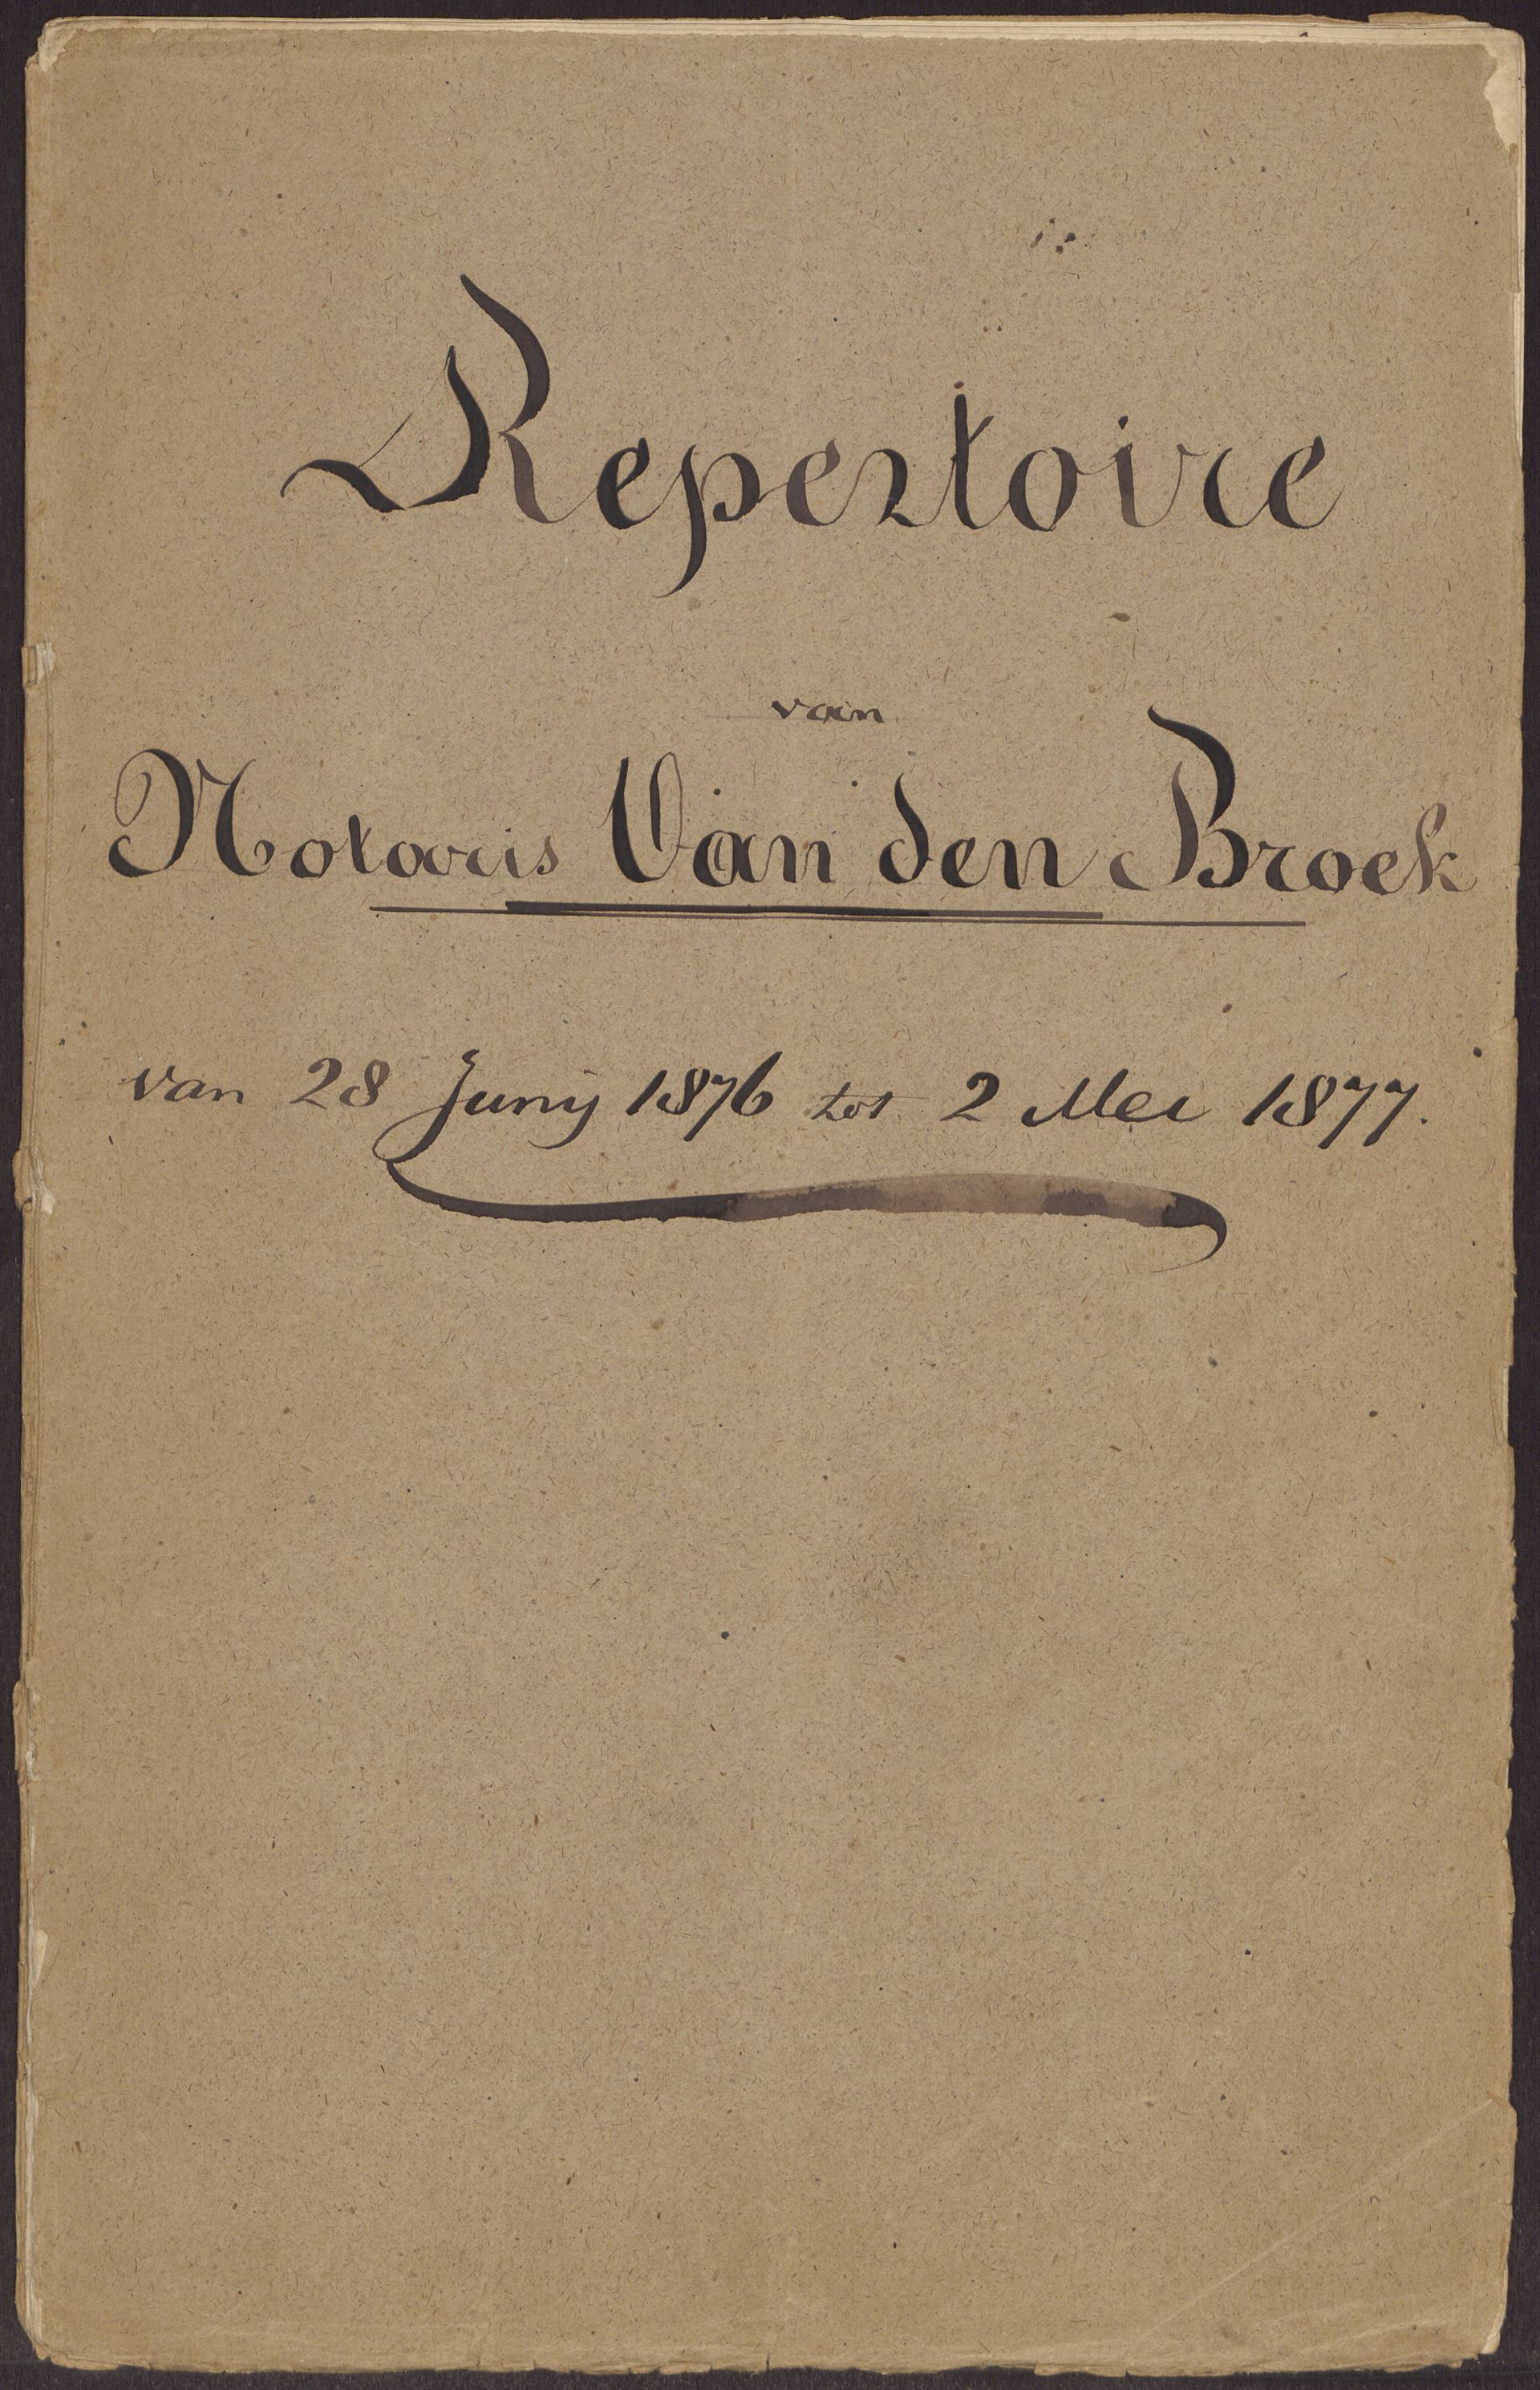 Repertoire
van
Notaris Van den Broek
van 28 Juny 1876 tot 2 Mei 1877.